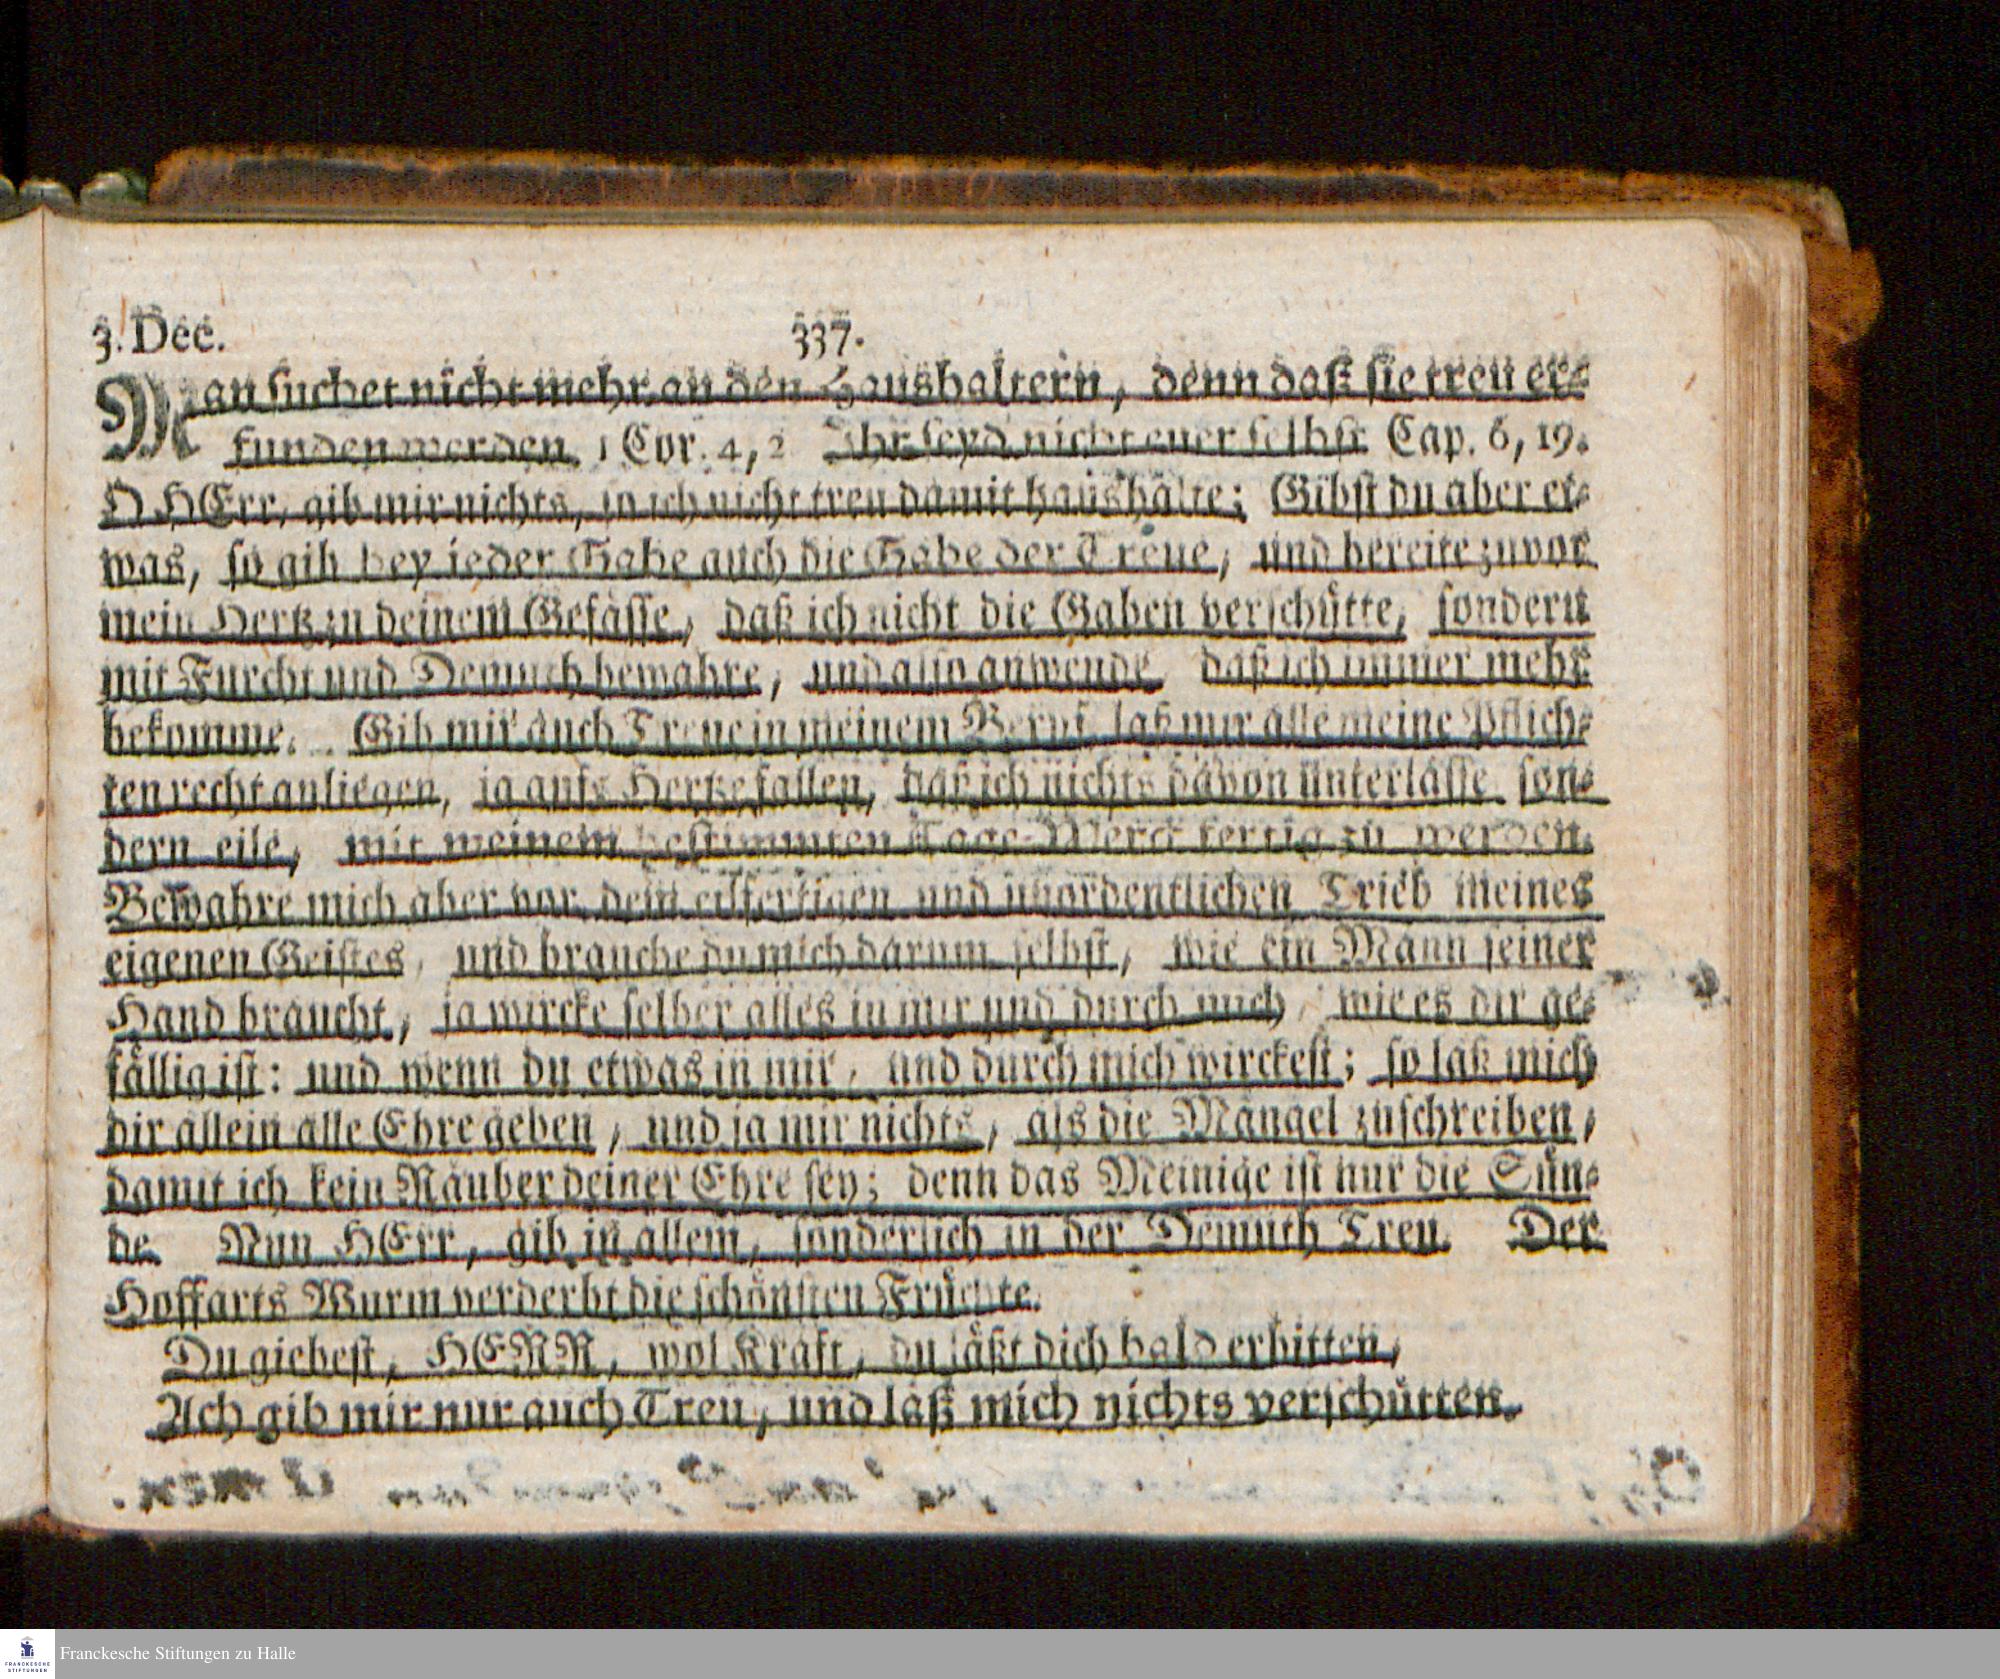 3. Dec. 337.
Man suchet nicht mehr an den Haushaltern, denn daß sie treu er-
funden werden. 1 Cor. 4, 2 Ihr seyd nicht euer selbst Cap. 6, 19.
O HErr, gib mir nichts, so ich nicht treu damit haushalte; Gibst du aber et-
was, so gib bey jeder Gabe auch die Gabe der Treue, und bereite zuvor
mein Hertz zu deinem Gefässe, daß ich nicht die Gaben verschütte, sondern
mit Furcht und Demuth bewahre, und also anwende, daß ich immer mehr
bekomme. Gib mir auch Treue in meinem Beruf, laß mir alle meine Pflich-
ten recht anliegen, ja aufs Hertze fallen, daß ich nichts davon unterlasse, son-
dern eile, mit meinem bestimmten Tage-Werck fertig zu werden.
Bewahre mich aber vor dem eilfertigen und unordentlichen Trieb meines
eigenen Geistes, und brauche du mich darum selbst, wie ein Mann seiner
Hand braucht, ja wircke selber alles in mir und durch mich, wie es dir ge-
fällig ist: und wenn du etwas in mir, und durch mich wirckest; so laß mich
dir allein alle Ehre geben, und ja mir nichts, als die Mängel zuschreiben,
damit ich kein Räuber deiner Ehre sey; denn das Meinige ist nur die Sün-
de. Nun HErr, gib in allem, sonderlich in der Demuth Treu. Der
Hoffarts Wurm verderbt die schönsten Früchte.
Du giebest, HERR, wol Kraft, du läßt dich bald erbitten,
Ach gib mir nur auch Treu, und laß mich nichts verschütten.
FRANCKESCHE
STIFTUNGEN
Franckesche Stiftungen zu Halle